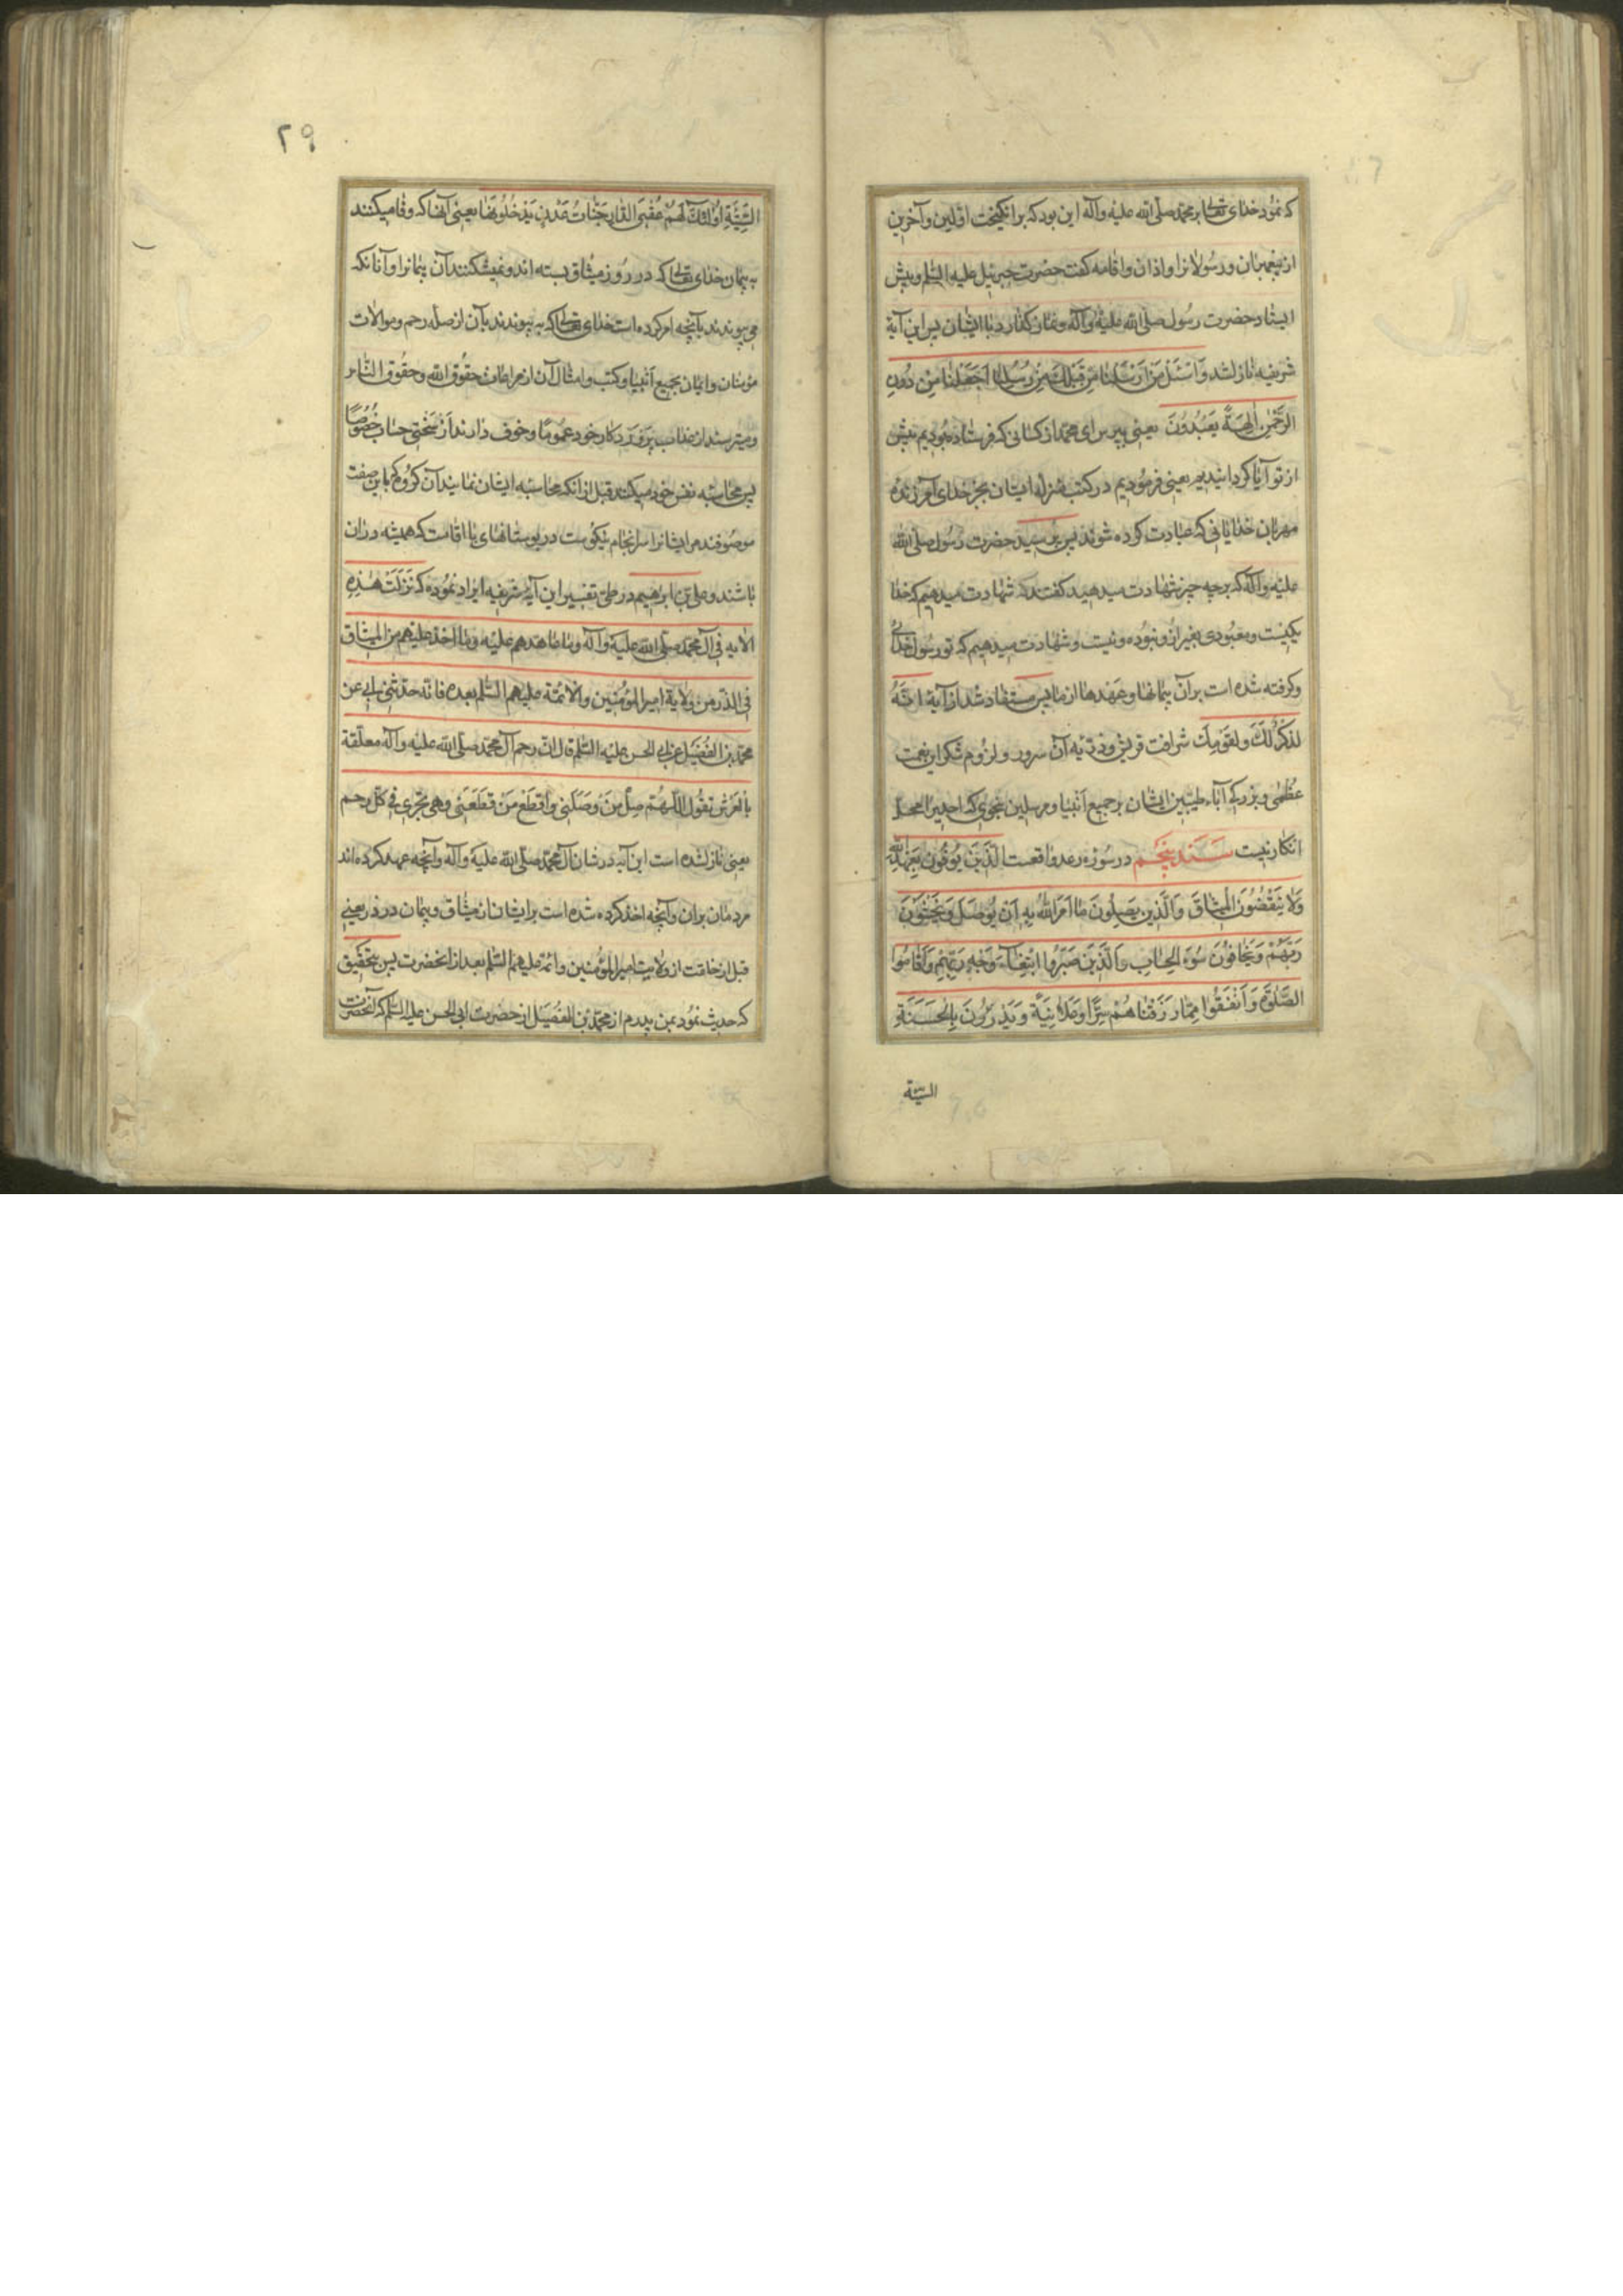 که نمود خدای تعالی بر محمد صلی الله علیه وآله این بود که برانکیخت اولین وآخرین
از پیغمبران ورسولانرا واذان واقامه کفت حضرت جبرئیل علیه السلم وپیش
ایستاد حضرت رسول صلی الله علیه وآله ونماز کذارد با ایشان پس این آیة
شریفه نازلشد وَاسْئَلْ مَنْ اَرْسَلْنا مِنْ قَبْلِكَ مِنْ رُسُلِنا اَجَعَلْنا مِنْ دُونِ
الرَّحْمٰنِ اٰلِهَةً يَعْبُدُونَ یعنی بپرس ای محمد از کسانی که فرستاده بودیم پیش
از تو آیا کردانیدیم یعنی فرمودیم در کتب منزله ایشان بجز خدای آمرزنده
مهربان خدایانی که عبادت کرده شوند پس پرسید حضرت رسول صلی الله
علیه وآله که برچه چیز شهادت میدهید کفتند که شهادت میدهیم که خدا
یکیست ومعبودی بغیر از او نبوده ونیست وشهادت میدهیم که تو رسول خدائی
وکرفته شده است برآن پیمانها وعهدها از ما پس مستفاد شد از آیة اِنَّهُ
لَذِكْرٌ لَكَ وَلِقَوْمِكَ شرافت قریش وذریّه آن سرور ولزوم شکر این نعمت
عظمی وبزرکی آباء طیبین ایشان برجمیع انبیا ومرسلین بنحوی که احدیرا محل
انکار نیست سند پنجم در سوره رعد واقعست الَّذينَ يُوفُونَ بِعَهْدِ اللهِ
وَلا يَنْقُضُونَ الْميثاقَ وَالَّذينَ يَصِلُونَ ما اَمَرَ اللهُ بِهِ اَنْ يُوصَلَ وَيَخْشَوْنَ
رَبَّهُمْ وَيَخافُونَ سُوءَ الْحِسابِ وَالَّذينَ صَبَرُوا ابْتِغاءَ وَجْهِ رَبِّهِمْ وَاَقامُوا
الصَّلوةَ وَاَنْفَقُوا مِمّا رَزَقْناهُمْ سِرًّا وَعَلانِيَةً وَيَدْرَؤُنَ بِالْحَسَنَةِ
السیئة
۲۹
السَّيِّئَةَ اُولٰئِكَ لَهُمْ عُقْبَى الدّارِ جَنّاتُ عَدْنٍ يَدْخُلُونَها یعنی آنها که وفا میکنند
به پیمان خدای تعالی که در روز میثاق بسته اند ونمیشکنند آن پیمانرا وآنانکه
می پیوندند بآنچه امر کرده است خدای تعالی که به پیوندند بآن از صله رحم وموالات
مؤمنان وایمان بجمیع انبیا وکتب وامثال آن از مراعات حقوق الله وحقوق الناس
ومیترسند از عذاب پروردکار خود عموما وخوف دارند از سختی حساب خصوصًا
پس محاسبه نفس خود میکنند قبل از انکه محاسبه ایشان نمایند آن کروهی که باین صفت
موصوفند مر ایشانرا سرانجام نیکوست در بوستانهای با اقامت که همیشه در ان
باشند وعلی بن ابرهیم در طی تفسیر این آیه شریفه ایراد نموده که نَزَلَتْ هٰذِهِ
الآیه فی آل محمد صلی الله علیه وآله وما عاهدهم علیه وما اخذ علیهم من المیثاق
فی الذر من ولایة امیر المؤمنین والائمة علیهم السلم بعده فانه حدثنی ابی عن
محمد بن الفُضَیل عن ابی الحسن علیه السلم قال ان رحم آل محمد صلی الله علیه وآله معلقة
بالعَرْش تقول اللّهُمّ صِلْ مَنْ وَصَلَنی وَاقْطَعْ مَنْ قَطَعَنی وهی تجری فی کل رحم
یعنی نازلشده است این آیه در شان آل محمد صلی الله علیه وآله وآنچه عهد کرده اند
مردمان بران وآنچه اخذ کرده شده است بر ایشان از میثاق وپیمان در ذر یعنی
قبل از خلقت از ولایت امیر المؤمنین وائمه علیهم السلم بعد از انحضرت پس بتحقیق
که حدیث نمود بمن پدرم از محمد بن الفُضَیل از حضرت ابی الحسن علیه السلم که آنحضرت